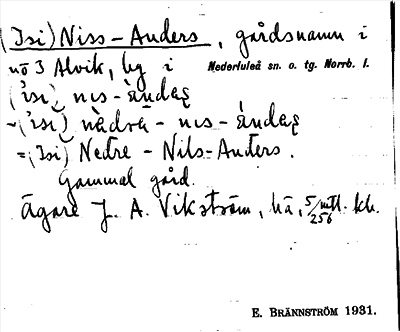 (Isi) Niss-Anders, gårdsnamn i
nö 3 Alvik, by i Nederluleå sn. o. tg. Norrb. l.
('isi) nıs-àndeʂ
~('isi) nædrä-nıs-ándeʂ
=(Isi) Nedre-Nils-Anders.
Gammal gård.
Ägare J. A. Vikström, hä, 5/256 mtl. kk.
E. BRÄNNSTRÖM 1931.